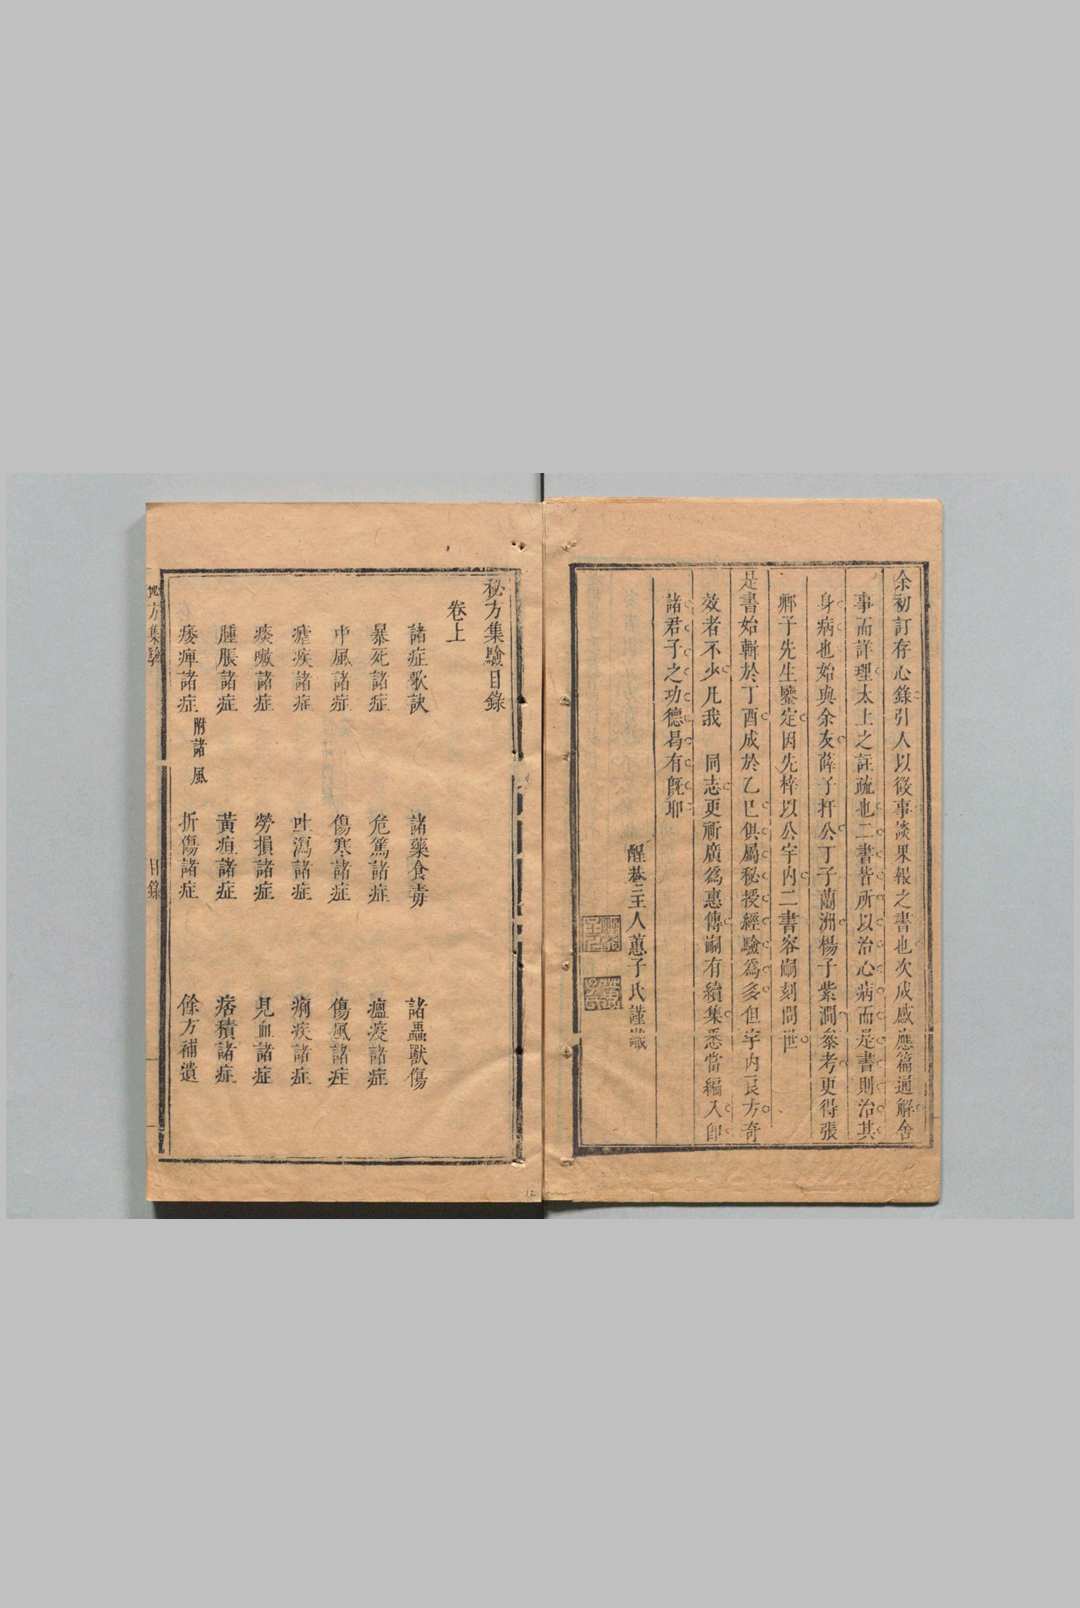 余初訂存心錄引人以徵事談果報之書也次成感應篇通解舍
事而詳理太上之註疏也二書皆所以治心病而是書則治其
身病也始與余友薛子扞公丁子蘭洲楊子紫瀾叅考更得張
鄊子先生鑒定因先梓以公宇内二書容嗣刻問世
是書始輯於丁酉成於乙巳俱屬秘授經驗為多但宇内良方奇
效者不少凡我 同志更祈廣為惠傳嗣有續集悉當編入卽
諸君子之功德曷有旣耶
醒菴主人蕙子氏謹識
秘方集驗目錄
卷上
諸症歌訣 諸藥食毒 諸蟲獸傷
暴死諸症 危篤諸症 瘟疫諸症
中風諸症 傷寒諸症 傷風諸症
瘧疾諸症 吐瀉諸症 痢疾諸症
痰嗽諸症 勞損諸症 見血諸症
腫脹諸症 黃疸諸症 痞積諸症
痿痺諸症 附諸風 折傷諸症 餘方補遺
秘方集驗 目錄